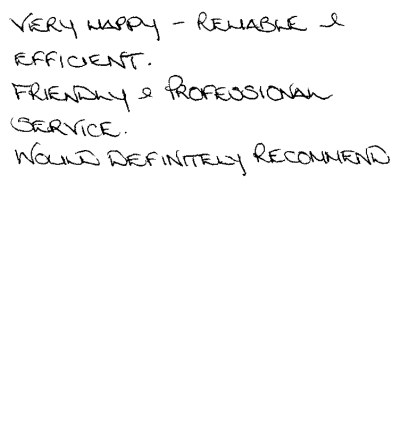 VERY HAPPY - RELIABLE &
EFFICIENT.
FRIENDLY & PROFESSIONAL
SERVICE.
WOULD DEFINITELY RECOMMEND